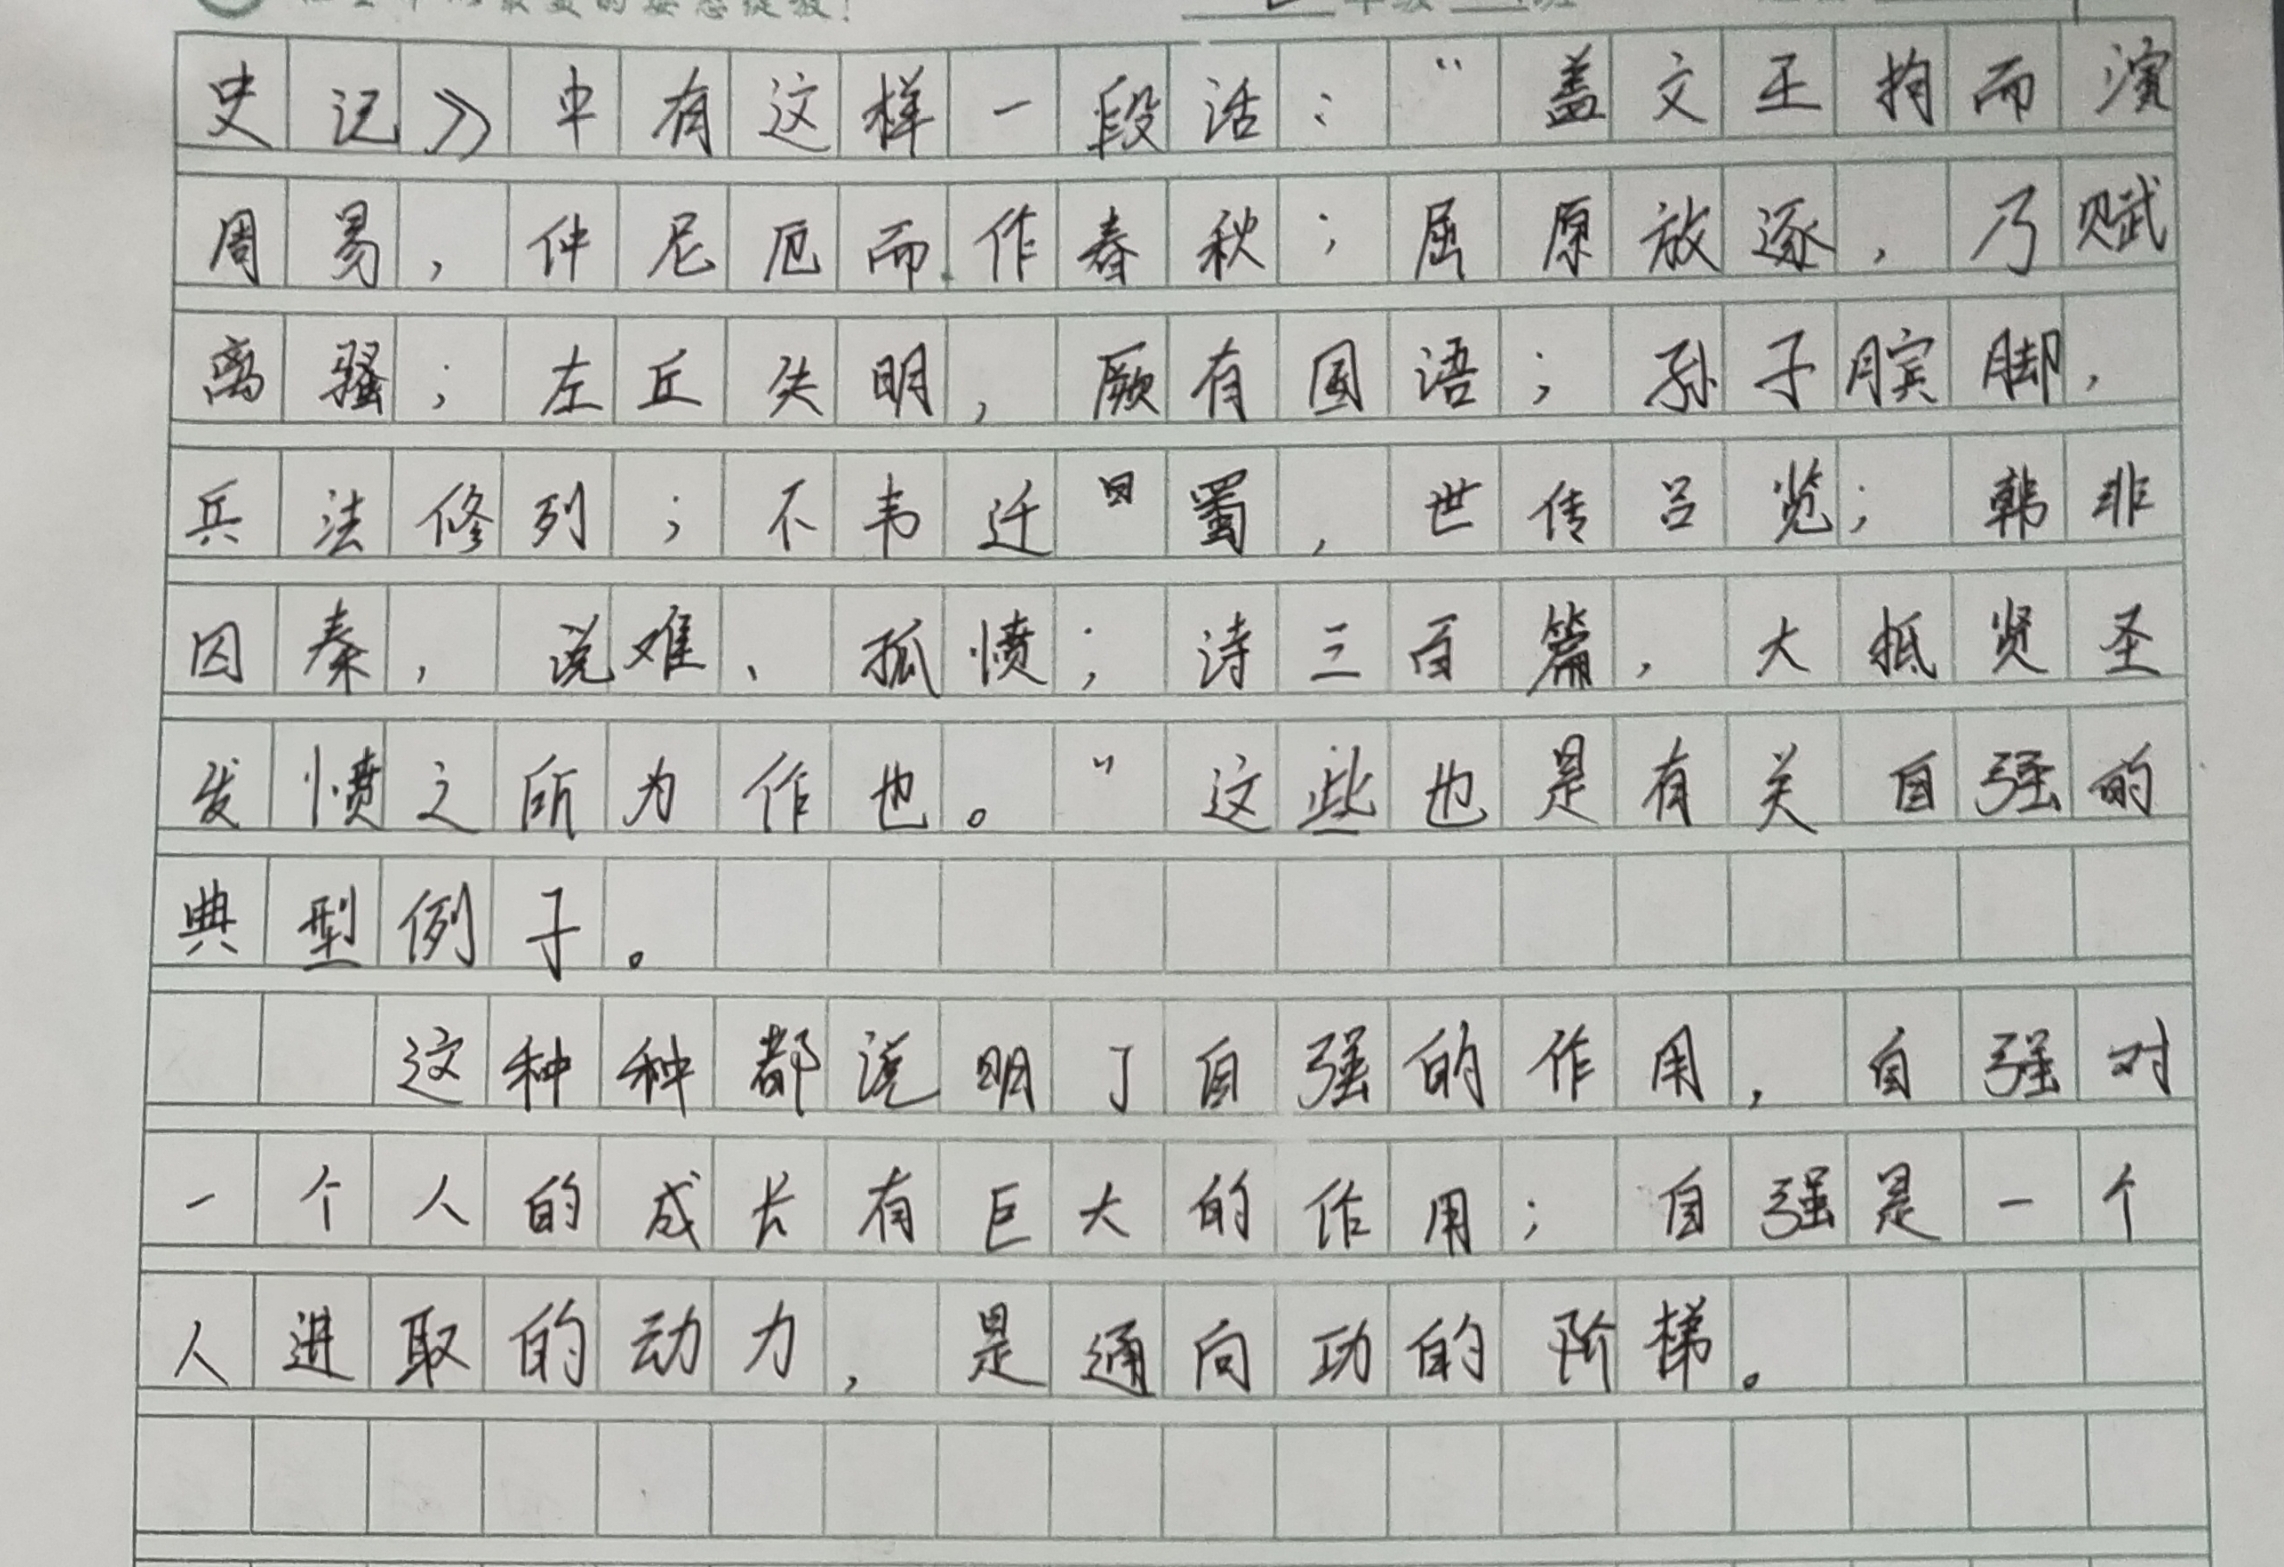 史记》中有这样一段话："盖文王拘而演
周易，仲尼厄而作春秋；屈原放逐，乃赋
离骚；左丘失明，厥有国语；孙子膑脚，
兵法修列；不韦迁蜀，世传吕览；韩非
囚秦，说难、孤愤；诗三百篇，大抵贤圣
发愤之所为作也。"这些也是有关自强的
典型例子。
这种种都说明了自强的作用，自强对
一个人的成长有巨大的作用；自强是一个
人进取的动力，是通向功的阶梯。